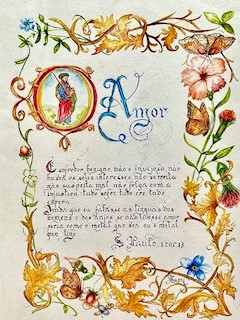 O Amor
É sofredor, benigno, não é invejoso, não
busca os seus interesses, não se irrita
não suspeita mal, não folga com a
injustiça: tudo sofre, tudo crê, tudo
espera.
Ainda que eu falasse as línguas dos
homens e dos anjos se não tivesse amor
seria como o metal que soa ou o metal
que tine
S. Paulo, 1 cor 13